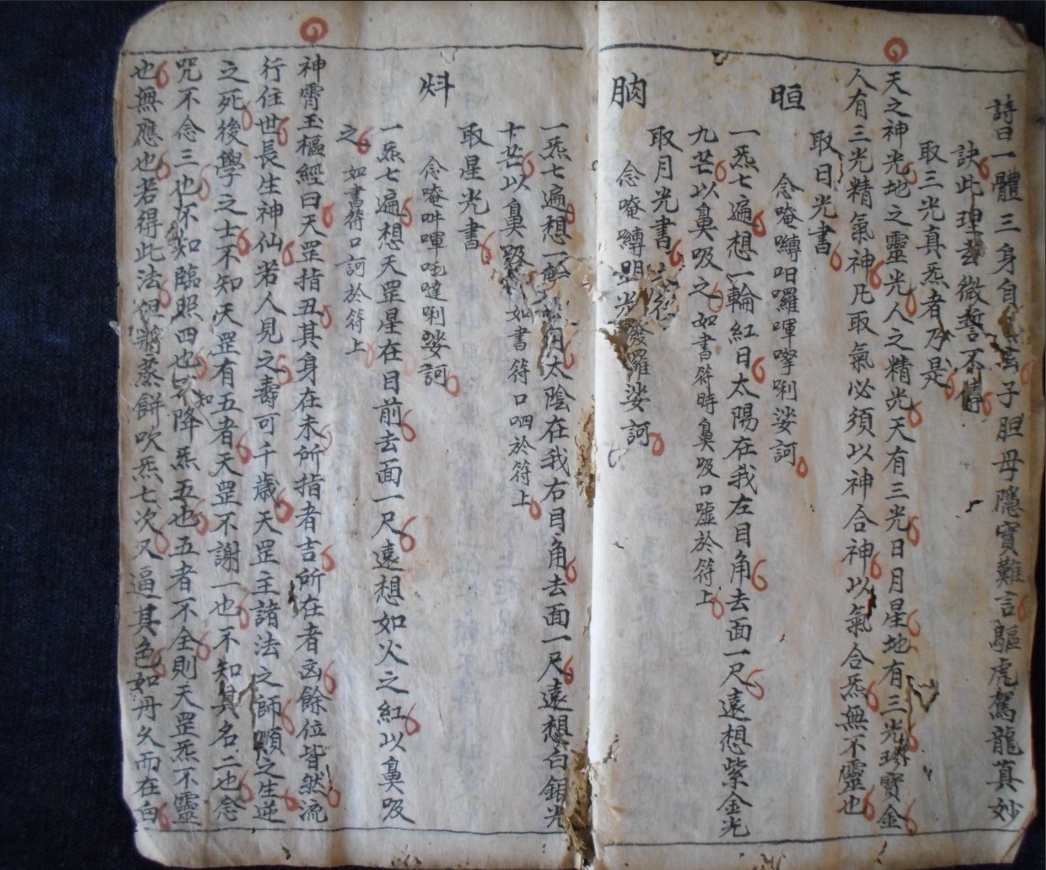 詩曰一體三身自子胆母隱實難言驅虎駕龍真妙
訣此理玄微誓不傳
取三光真炁者乃是
天之神光地之靈光人之精光天有三光日月星地有三光珍寶金
人有三光精氣神凡取氣必須以神合神以氣合炁無不靈也
取日光書
晅
念唵囀呬囉唓嚀唎娑訶
一炁七遍想一輪紅日太陽在我左目角去面一尺遠想紫金光
九芒以鼻吸之如書符時鼻吸口噓於符上
取月光書
朒
念唵囀明光發囉娑訶
一炁七遍想一太陰在我右目角去面一尺遠想白銀光
十芒以鼻吸如書符口呬於符上
取星光書
炓
念唵吽唓吒噠唎娑訶
一炁七遍想天罡星在目前去面一尺遠想如火之紅以鼻吸
之如書符口訶於符上
神霄玉樞經曰天罡指丑其身在未所指者吉所在者凶餘位皆然流
行住世長生神仙若人見之壽可千歲天罡主諸法之師順之生逆
之死後學之士不知天罡有五者天罡不謝一也不知其名二也念
咒不念三也不知臨照四也不降炁五也五者不全則天罡炁不靈
也無應也若得此法但將蒸餅吹炁七次又逼其色如丹久而在白